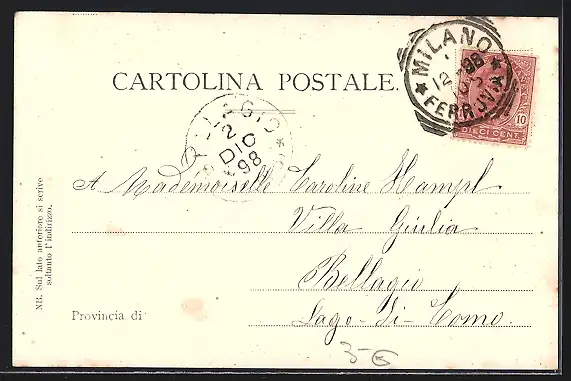 MILANO
12-98
FERROVIA
CARTOLINA POSTALE.
10
DIECI CENT.
20
DIC
98
A Mademoiselle Caroline Hampl
Villa Giulia
Bellagio
Lago-di-Como.
Provincia di
NB. Sul lato anteriore si scrive
soltanto l'indirizzo.